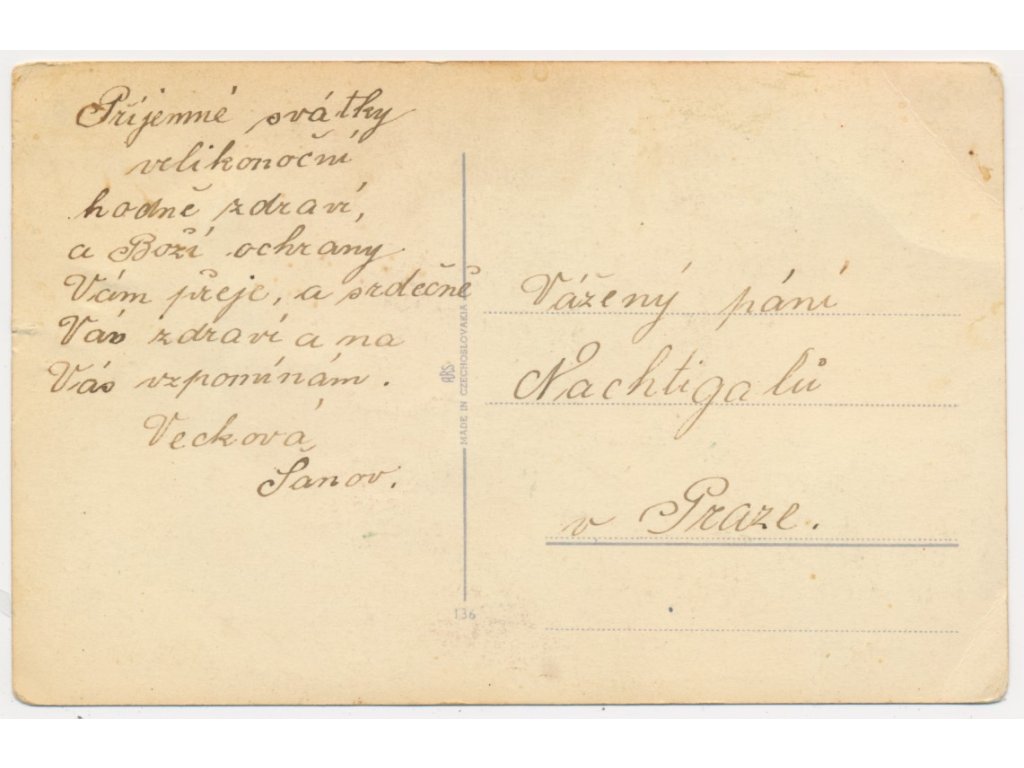 Příjemné svátky
velikonoční
hodně zdraví,
a Boží ochrany
Vám přeje, a srdečně
Vás zdraví a na
Vás vzpomínám.
Vecková
Šanov.
Vážený pání
Nachtigalů
v Praze.
ARS
MADE IN CZECHOSLOVAKIA
136